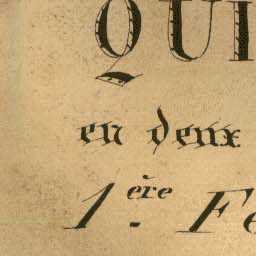 QUI
en deux
1.ère Fe